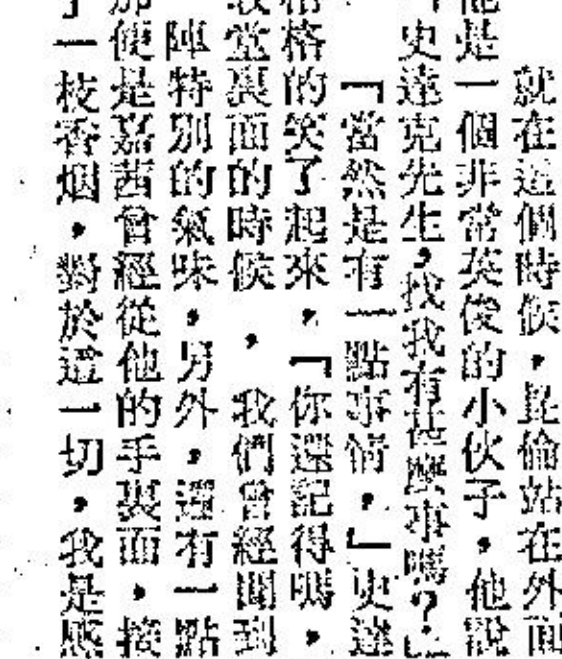 就在這個時候，昆倫站在外面
他是一個非常英俊的小伙子，他說
「史達克先生，找我有甚麼事嗎？」
「當然是有一點事情，」史達
格格的笑了起來，「你還記得嗎，
堂裏面的時候，我們曾經聞到
陣特別的氣味，另外，還有一點
那便是嘉茜曾經從他的手裏面，接
了一枝香烟，對於這一切，我是